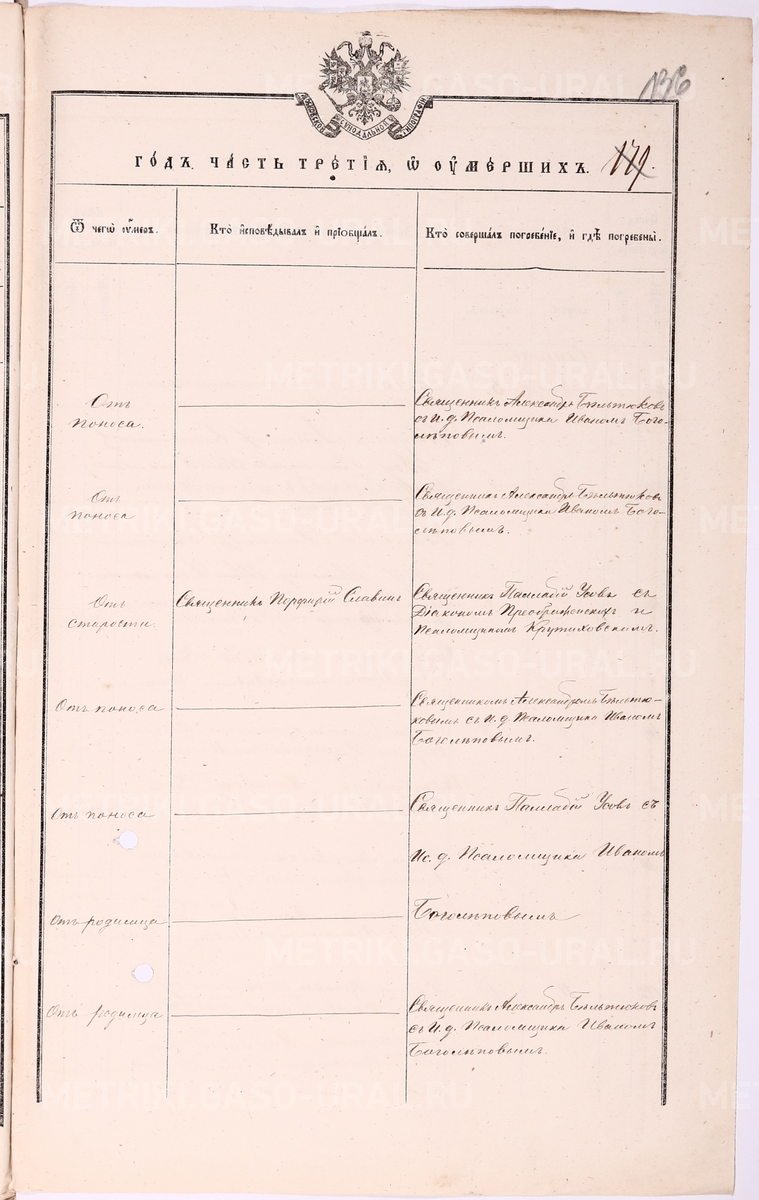 136
МОСКОВСКОЙ СѴНОДАЛЬНОЙ ТИПОГРАФІИ
ГОДЪ, ЧАСТЬ ТРЕТІЯ, Ѿ ОУМЕРШИХЪ.
179
Ѿ чегѡ оумеръ.
Кто исповѣдывалъ и пріобщалъ.
Кто совершалъ погребеніе, и гдѣ погребены.
Отъ
поноса.
Священникъ Александръ Бѣльтюковъ
съ И. д. Псаломщика Иваномъ Бого-
лѣповымъ.
Отъ
поноса
Священникъ Александръ Бѣльтюковъ
съ И. д. Псаломщика Иваномъ Бого-
лѣповымъ.
Отъ
старости.
Священникъ Порфирій Славинъ
Священникъ Палладій Усовъ съ
Діакономъ Преображенскимъ и
Псаломщикомъ Крутиховскимъ.
Отъ поноса
Священникомъ Александромъ Бѣльтю-
ковымъ съ И. д. Псаломщика Иваномъ
Боголѣповымъ.
Отъ поноса
Священникъ Палладій Усовъ съ
Ис. д. Псаломщика Иваномъ
Отъ родимца
Боголѣповымъ
Отъ родимца
Священникъ Александръ Бѣльтюковъ
съ И. д. Псаломщика Иваномъ
Боголѣповымъ.
METRIKI.GASO-URAL.RU